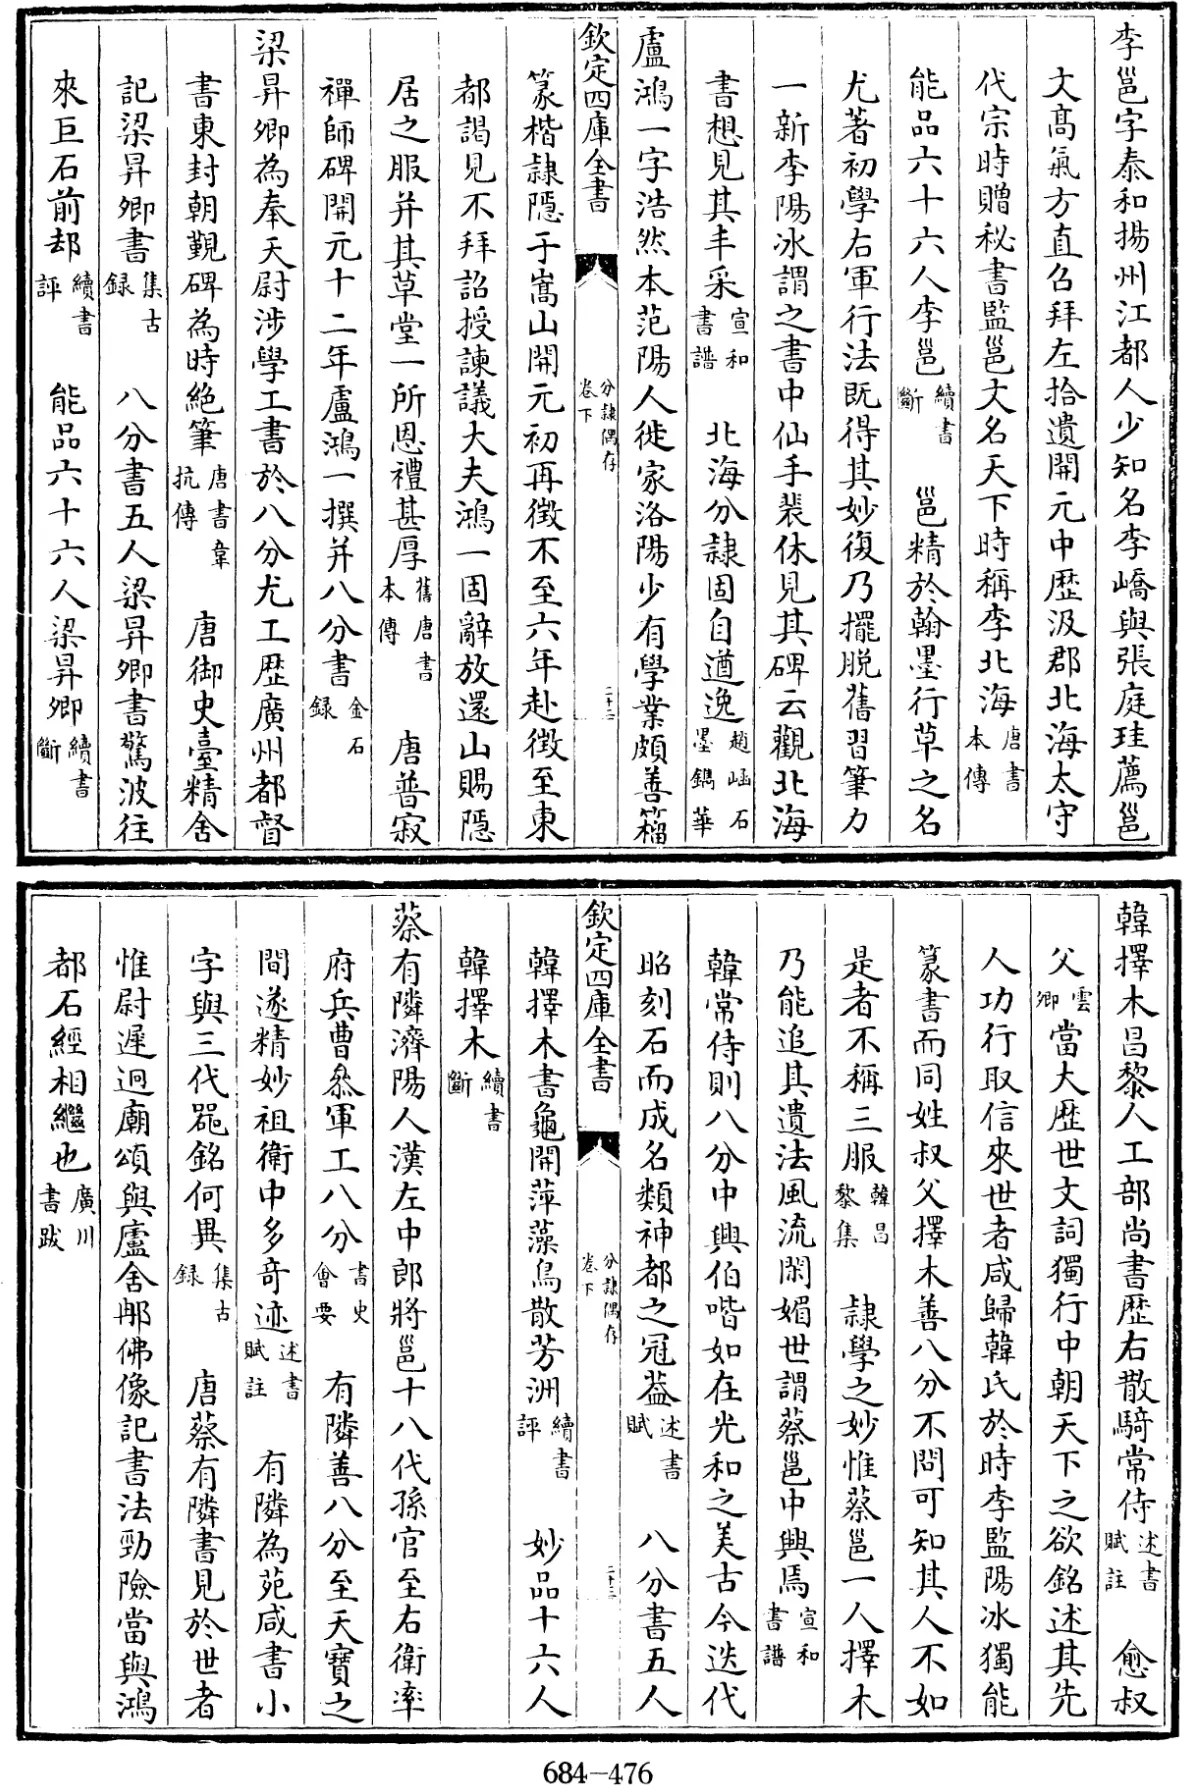 李邕字泰和揚州江都人少知名李嶠與張庭珪薦邕
文高氣方直召拜左拾遺開元中歴汲郡北海太守
代宗時贈秘書監邕文名天下時稱李北海唐書本傳
能品六十六人李邕續書斷　邕精於翰墨行草之名
尤著初學右軍行法既得其妙復乃擺脱舊習筆力
一新李陽冰謂之書中仙手裴休見其碑云觀北海
書想見其丰采宣和書譜　北海分隸固自遒逸趙崡石墨鐫華
盧鴻一字浩然本范陽人徙家洛陽少有學業頗善籀
欽定四庫全書　分隸偶存卷下　二十二
篆楷隸隱于嵩山開元初再徵不至六年赴徵至東
都謁見不拜詔授諫議大夫鴻一固辭放還山賜隱
居之服并其草堂一所恩禮甚厚舊唐書本傳　唐普寂
禪師碑開元十二年盧鴻一撰并八分書金石録
梁昇卿為奉天尉涉學工書於八分尤工歴廣州都督
書東封朝覲碑為時絶筆唐書韋抗傳　唐御史臺精舍
記梁昇卿書集古録　八分書五人梁昇卿書驚波往
來巨石前却續書評　能品六十六人梁昇卿續書斷
韓擇木昌黎人工部尚書歴右散騎常侍述書賦註　愈叔
父雲卿當大歴世文詞獨行中朝天下之欲銘述其先
人功行取信來世者咸歸韓氏於時李監陽冰獨能
篆書而同姓叔父擇木善八分不問可知其人不如
是者不稱三服韓昌黎集　隸學之妙惟蔡邕一人擇木
乃能追其遺法風流閑媚世謂蔡邕中興焉宣和書譜
韓常侍則八分中興伯喈如在光和之美古今迭代
昭刻石而成名類神都之冠葢述書賦　八分書五人
欽定四庫全書　分隸偶存卷下　二十三
韓擇木書龜開萍藻鳥散芳洲續書評　妙品十六人
韓擇木續書斷
蔡有隣濟陽人漢左中郎將邕十八代孫官至右衛率
府兵曹叅軍工八分書史會要　有隣善八分至天寶之
間遂精妙祖衛中多奇迹述書賦註　有隣為苑咸書小
字與三代噐銘何異集古録　唐蔡有隣書見於世者
惟尉遲迥廟頌與盧舍郍佛像記書法勁險當與鴻
都石經相繼也廣川書跋
684-476